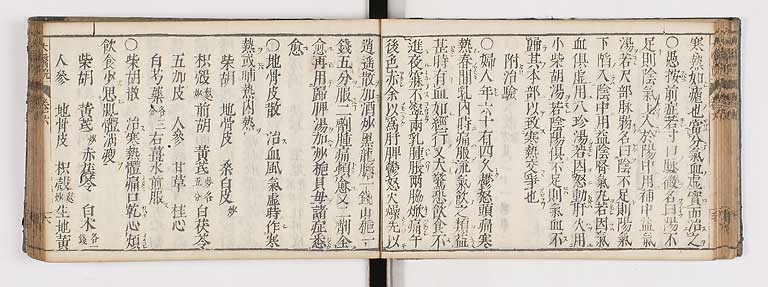 寒熱如瘧也當分氣血虛實而治之
○愚按前症若寸口脉微名曰陽不
足則陰氣上入於陽中用補中益氣
湯若尺部脉弱名曰陰不足則陽氣
下陷入陰中用益陰腎氣丸若因氣
血俱虛用八珍湯若因怒動肝火用
小柴胡湯若陰陽俱不足則氣血不
歸其本部以致寒熱交爭也
附治驗
○婦人年六十有四久鬱怒頭痛寒
熱春間乳內時痛服流氣飲之類益
甚時有血如經行又大驚恐飲食不
進夜寐不寧兩乳腫脹兩脇嫩痛午
後色赤余以為肝脾鬱怒火燥先以
逍遙散加酒炒黑龍膽一錢山梔一
錢五分服二劑腫痛頓愈又二劑全
愈再用歸脾湯加炒梔貝母諸症悉
愈
○地骨皮散 治血風氣虛時作寒
熱或晡熱內熱
柴胡 地骨皮 桑白皮炒
枳殼麩炒 前胡 黃芪炒各七分五厘 白茯苓
五加皮 人參 甘草 桂心
白芍藥各五分 右薑水煎服
○柴胡散 治寒熱體痛口乾心煩
飲食少思肌體瘦
柴胡 黃芪炒 赤茯苓 白朮各一錢
人參 地骨皮 枳殼麩炒 生地黃